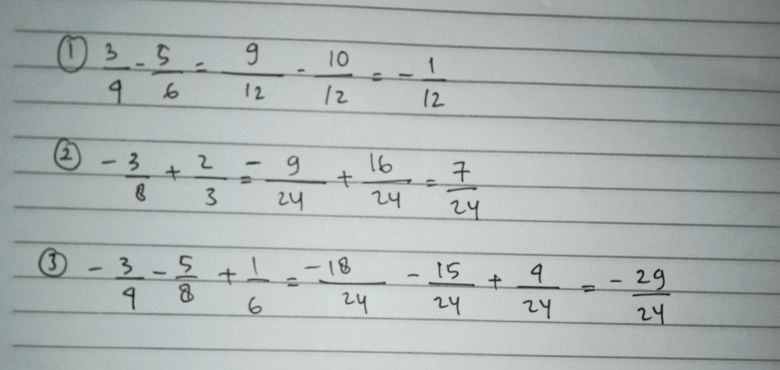 ① 3/4 - 5/6 = 9/12 - 10/12 = - 1/12
② - 3/8 + 2/3 = - 9/24 + 16/24 = 7/24
③ - 3/4 - 5/8 + 1/6 = -18/24 - 15/24 + 4/24 = - 29/24